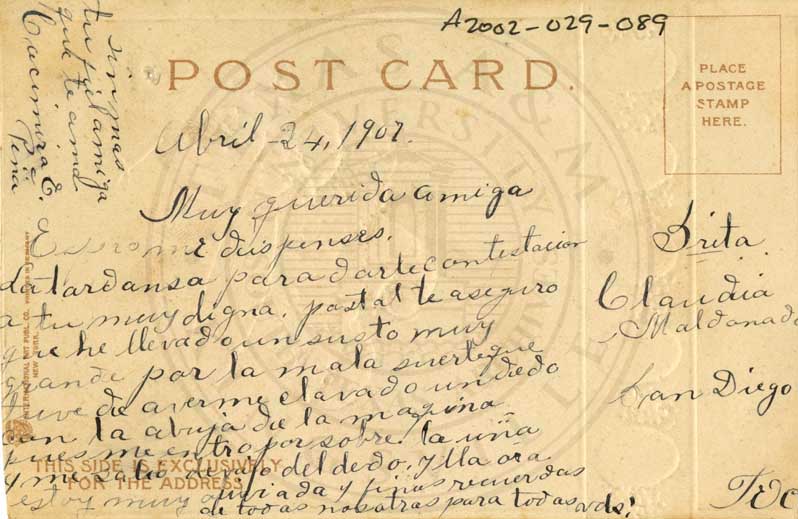 A2002-029-089
POST CARD.
PLACE
A POSTAGE
STAMP
HERE.
sin mas
tu fiel amiga
que te ama
Cacimira E.
Peña
Abril-24, 1907.
Muy querida amiga
Espero me dispenses.
La tardansa para darte contestacion
a tu muy digna. postal te aseguro
que he llevado un susto muy
grande por la mala suerte que
tuve de averme clavado un dedo
con la abuja de la maquina
pues me entro por sobre la uña
y me salio debajo del dedo, y lla ora
estoy muy aliviada y finas recuerdas
de todas nosotras para todas vds.
Srita
Claudia
Maldonado
San Diego
Tex
THIS SIDE IS EXCLUSIVELY
FOR THE ADDRESS
INTERNATIONAL ART PUBL. CO.
NEW YORK.